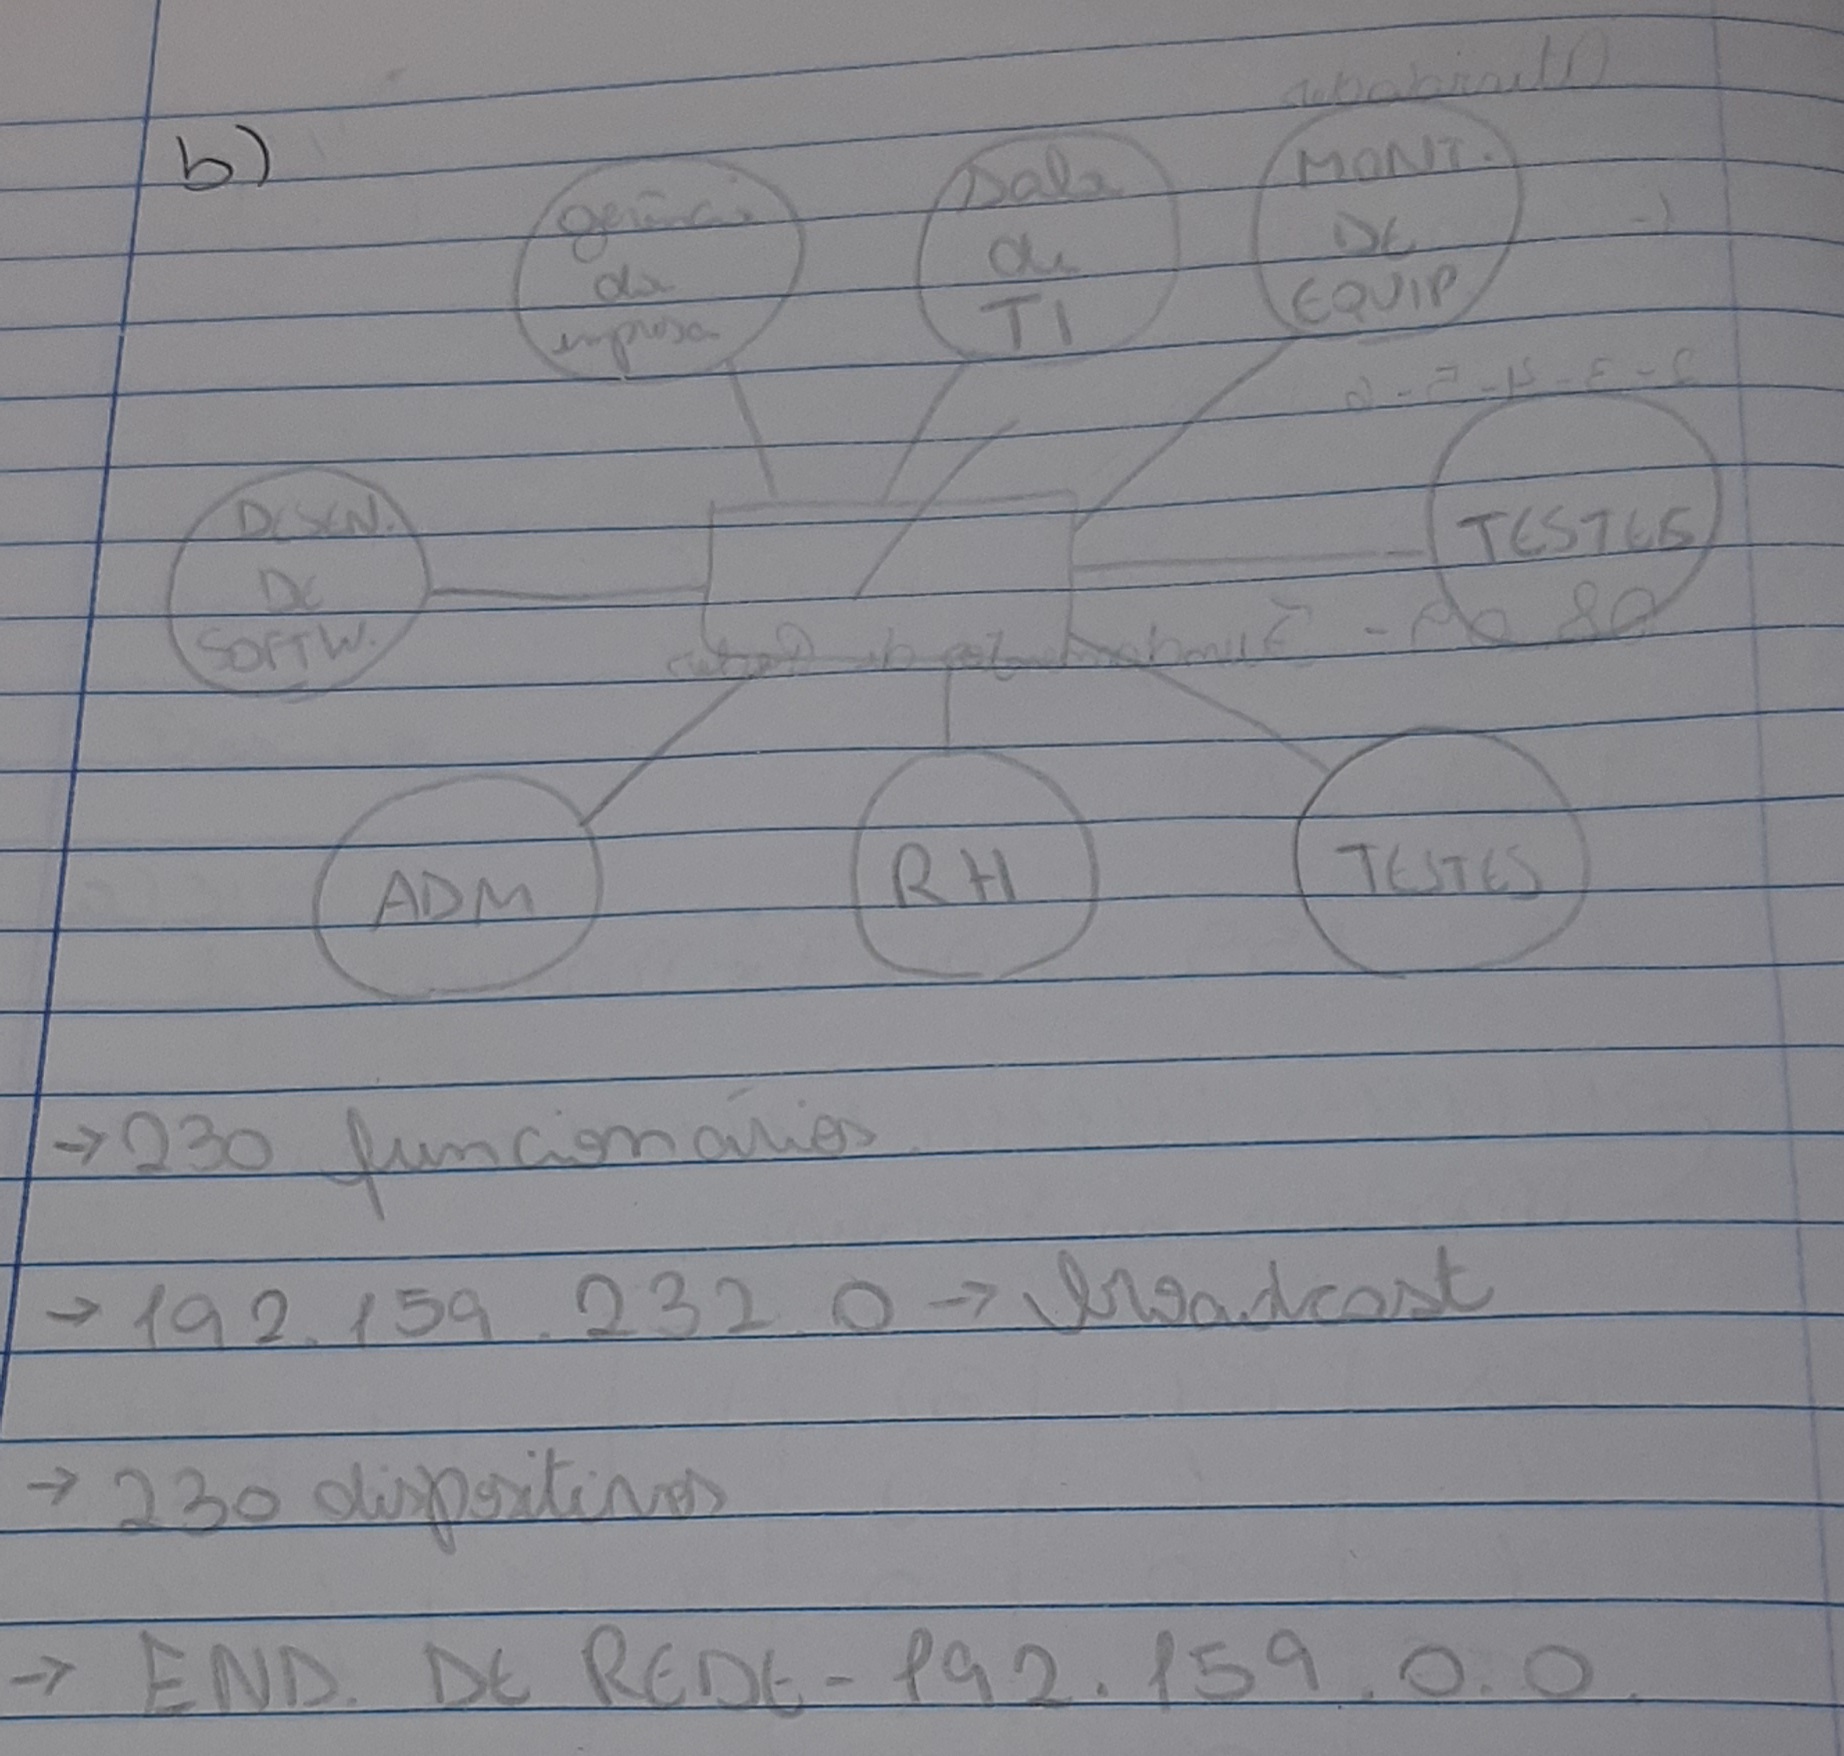 b)
gerência
da
empresa
Sala
de
TI
MONT.
DE
EQUIP
DESEN.
DE
SOFTW.
TESTES
ADM
RH
TESTES
→ 230 funcionários
→ 192.159.232.0 → broadcast
→ 230 dispositivos
→ END. DE REDE - 192.159.0.0.